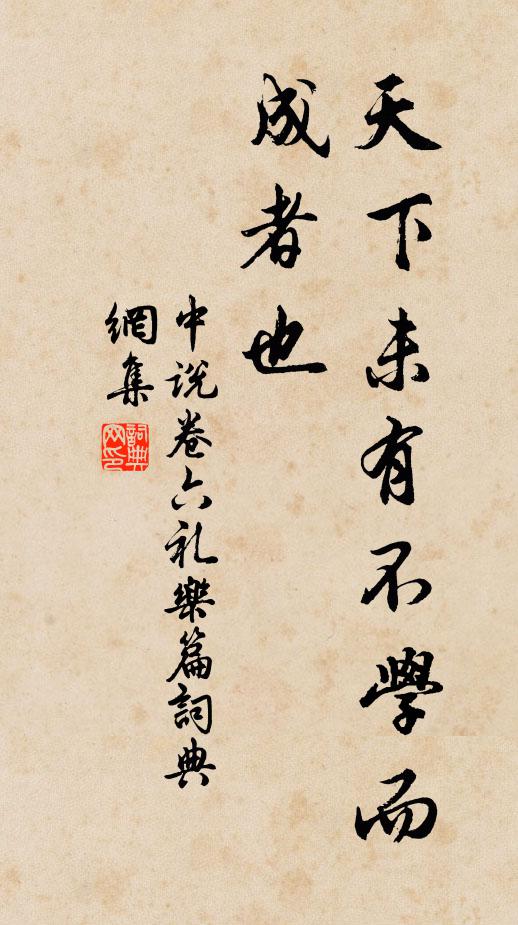 天下未有不學而
成者也
中說卷六礼樂篇詞典
網集
詞典
网印